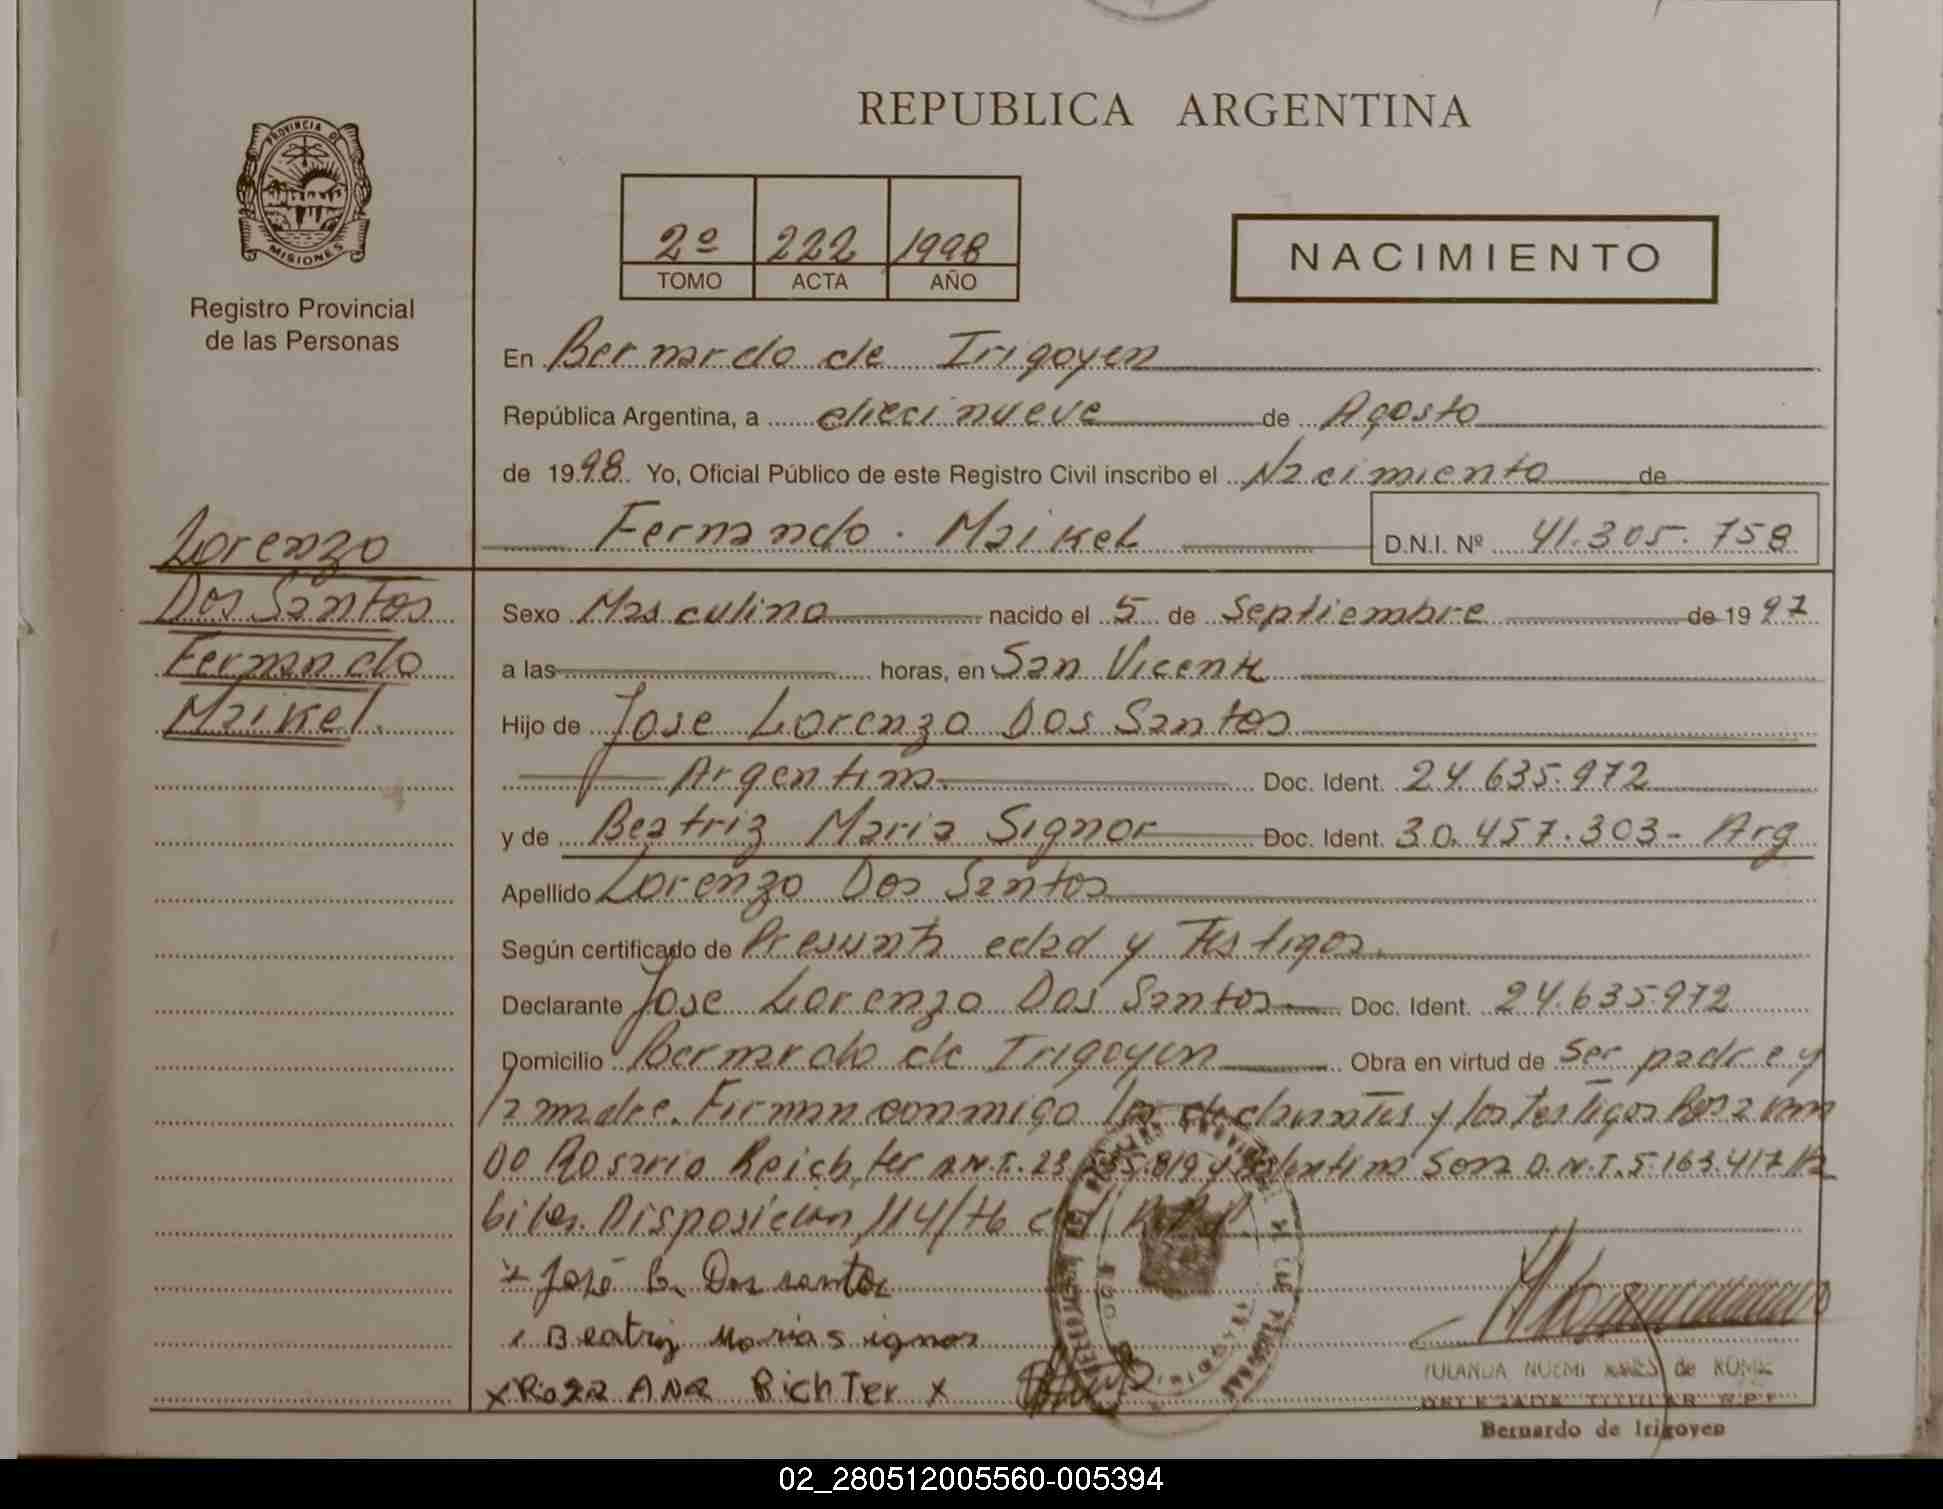 REPUBLICA ARGENTINA
PROVINCIA DE
MISIONES
Registro Provincial
de las Personas
2º 222 1998
TOMO ACTA AÑO
NACIMIENTO
En Bernardo de Irigoyen
República Argentina, a diecinueve de Agosto
de 1998. Yo, Oficial Público de este Registro Civil inscribo el Nacimiento de
Fernando Maikel D.N.I. Nº 41.305.758
Lorenzo
Dos Santos
Fernando
Maikel.
Sexo Masculino nacido el 5 de Septiembre de 1997
a las horas, en San Vicente
Hijo de Jose Lorenzo Dos Santos
Argentina Doc. Ident. 24.635.972
y de Beatriz Maria Signor Doc. Ident. 30.457.303- Arg
Apellido Lorenzo Dos Santos
Según certificado de Presunta edad y Testigos.
Declarante Jose Lorenzo Dos Santos Doc. Ident. 24.635.972
Domicilio Bernardo de Irigoyen Obra en virtud de ser padre y
la madre. Firman conmigo los declarantes y los testigos
Do Rosario Reichter D.N.I. D.N.I. 5.163.417
biles. Disposicion 114/76 del
x José L. Dos santos
x Beatriz Maria signor
x Rozz Ana Richter x
de
Bernardo de Irigoyen
02_280512005560-005394